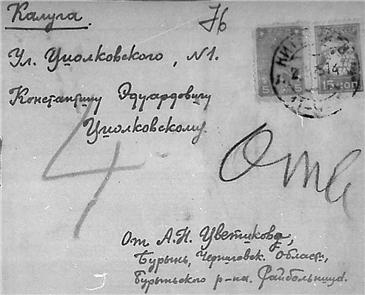 Калуга.
Ул. Циолковского, №1.
Константину Эдуардовичу
Циолковскому.
4
Отв
От А.Н. Цветикова,
Бурынь, Черниговск. Област.,
Бурыньского р-на. Райбольница.